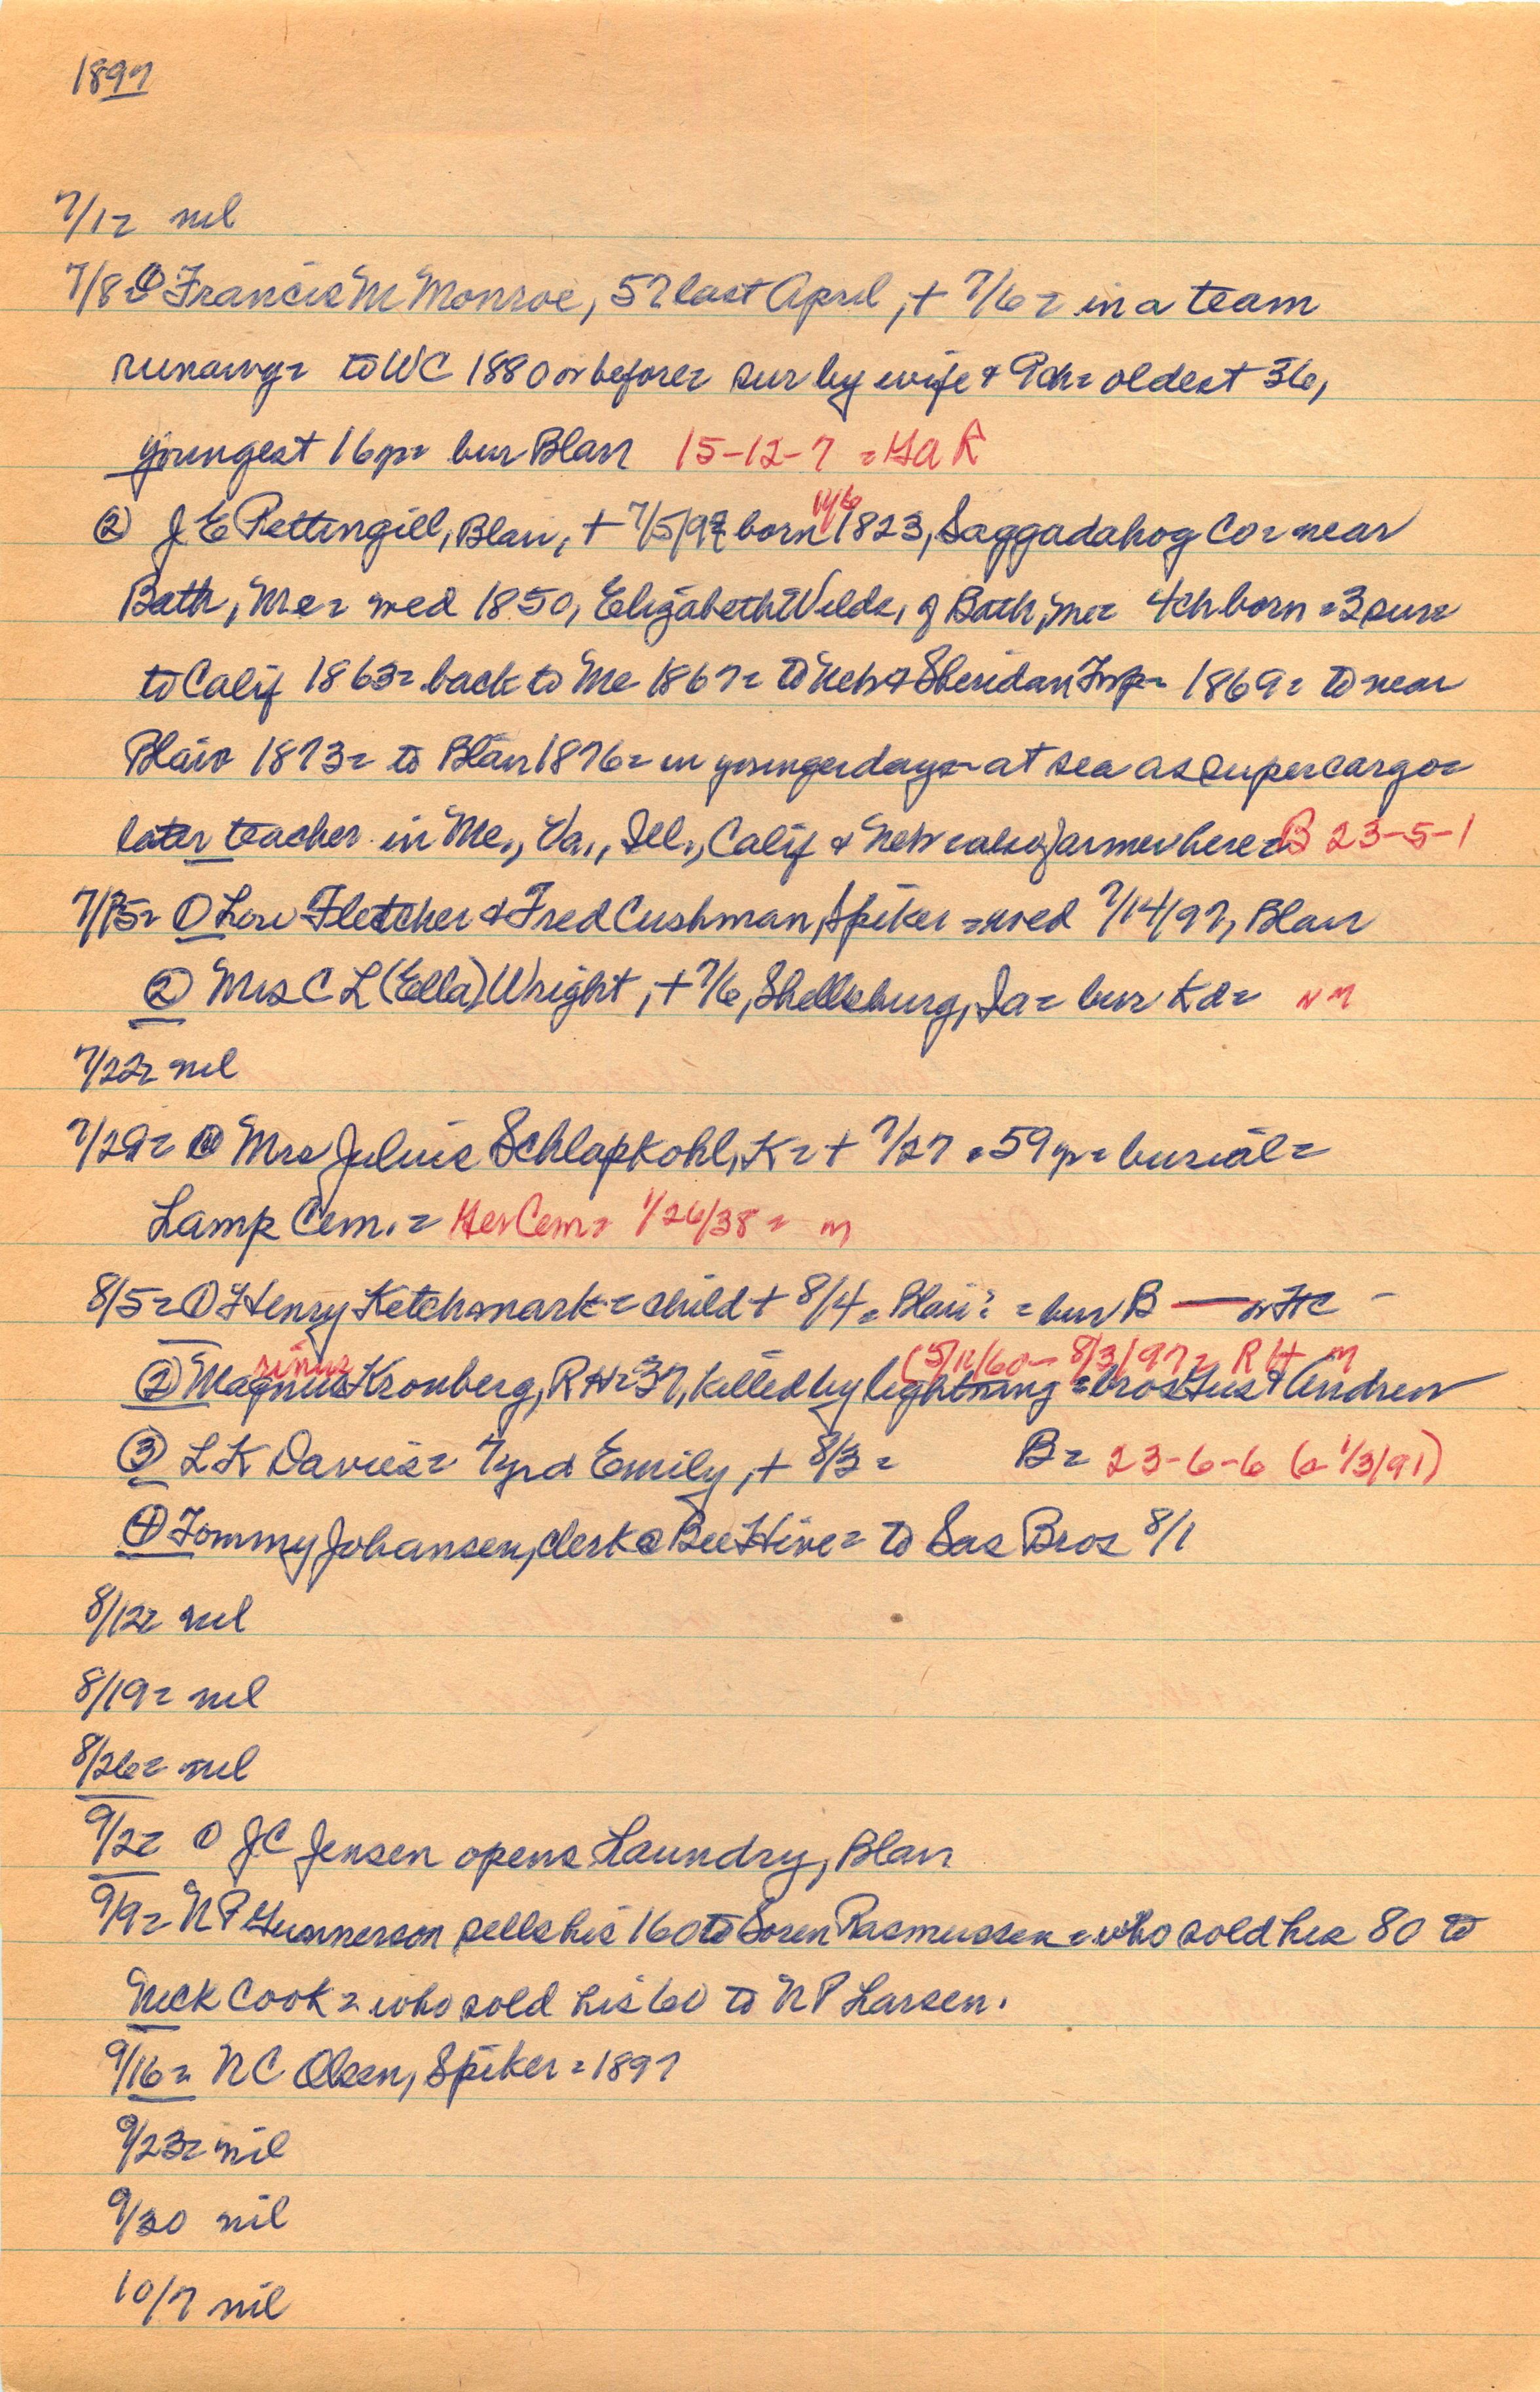 1897
7/1= nil
7/8= ① Francis M Monroe, 57 last April, + 7/6= in a team
runaway= to WC 1880 or before= sur by wife & 9 ch= oldest 36,
youngest 16 yr= bur Blair 15-12-7 = GAR
② J E Pettingill, Blair, + 7/5/97= born 1823, Saggadahog Co= near
Bath, Me= wed 1850, Elizabeth Welds, of Bath, Me= 4 ch born = 3 sur=
to Calif 1863= back to Me 1867= to Neb & Sheridan Twp= 1869= to near
Blair 1873= to Blair 1876= in younger days= at sea as supercargo=
later teacher in Me., Va., Ill., Calif & Neb= also farmer here= B 23-5-1
7/15= ① Lou Fletcher & Fred Cushman, Spiker = wed 7/14/97, Blair
② Mrs C L (Ella) Wright, + 7/6, Shellsburg, Ia= bur Kd= nm
7/22= nil
7/29= ① Mrs Julius Schlapkohl, K= + 7/27 = 59 yr= burial=
Lamp Cem. = Her Cem= 1/26/38= m
8/5= ① Henry Ketchmark= child + 8/4= Blair? = bur B — or HC
rinus (5/11/60 - 8/3/97= RH m
② Magnus Kronberg, RH= 37, killed by lightning = bros Gus & Andrew
③ L K Davies= 7 yr d Emily, + 8/3= B= 23-6-6 (b 1/3/91)
④ Tommy Johansen, clerk @ Bee Hive= to Sas Bros 8/1
8/12= nil
8/19= nil
8/26= nil
9/2= ① J C Jensen opens Laundry, Blair
9/9= N P Gunnerson sells his 160 to Soren Rasmussen= who sold his 80 to
Nick Cook= who sold his 60 to N P Larsen.
9/16= N C Olsen, Spiker= 1897
9/23= nil
9/30 nil
10/7 nil